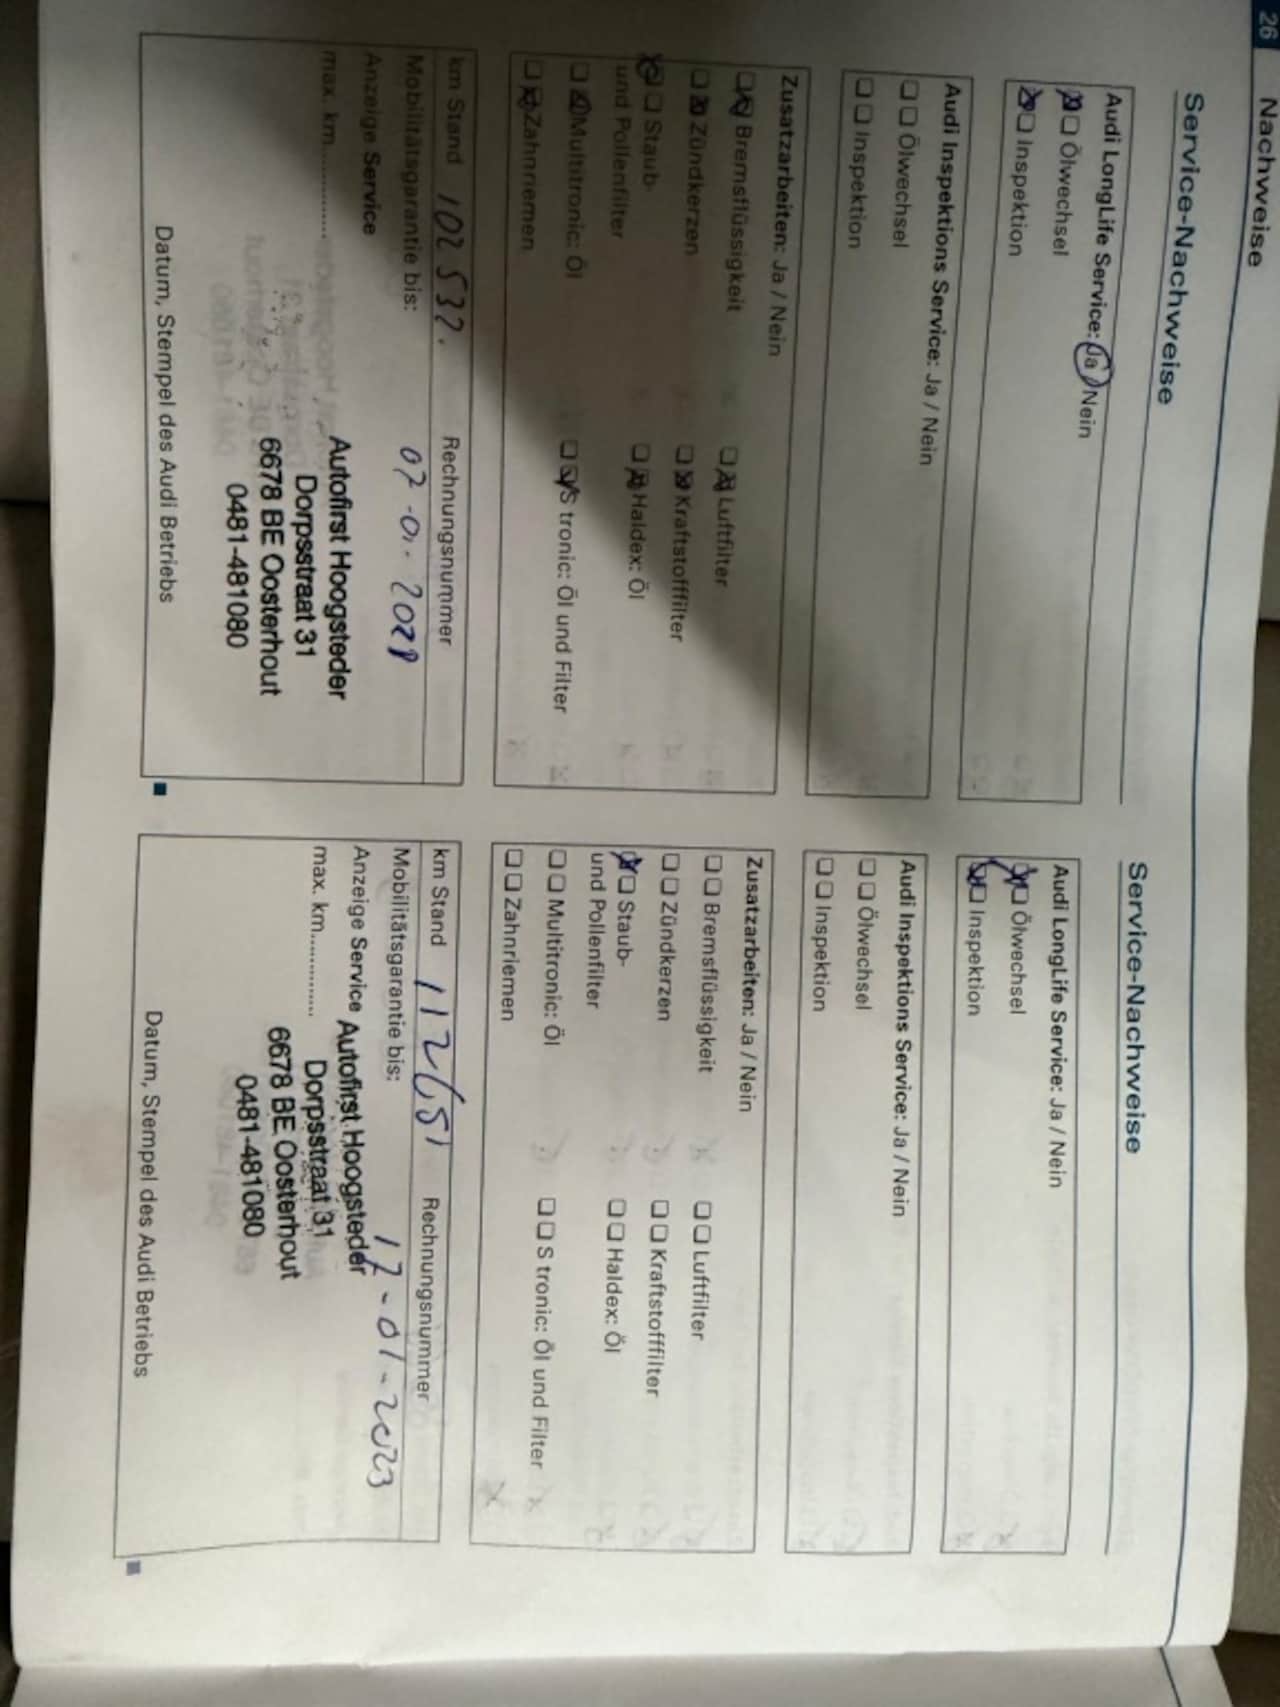 26 Nachweise
Service-Nachweise
Audi LongLife Service: Ja / Nein
Ölwechsel
Inspektion
Audi Inspektions Service: Ja / Nein
Ölwechsel
Inspektion
Zusatzarbeiten: Ja / Nein
Bremsflüssigkeit
Luftfilter
Zündkerzen
Kraftstofffilter
Staub-
und Pollenfilter
Haldex: Öl
Multitronic: Öl
S tronic: Öl und Filter
Zahnriemen
km Stand 102532.
Rechnungsnummer
Mobilitätsgarantie bis:
Anzeige Service
max. km..............
Autofirst Hoogsteder
Dorpsstraat 31
6678 BE Oosterhout
0481-481080
Datum, Stempel des Audi Betriebs
Service-Nachweise
Audi LongLife Service: Ja / Nein
Ölwechsel
Inspektion
Audi Inspektions Service: Ja / Nein
Ölwechsel
Inspektion
Zusatzarbeiten: Ja / Nein
Bremsflüssigkeit
Luftfilter
Zündkerzen
Kraftstofffilter
Staub-
und Pollenfilter
Haldex: Öl
Multitronic: Öl
S tronic: Öl und Filter
Zahnriemen
km Stand
Rechnungsnummer
Mobilitätsgarantie bis:
17-01-2023
Anzeige Service
max. km..............
Autofirst Hoogsteder
Dorpsstraat 31
6678 BE Oosterhout
0481-481080
Datum, Stempel des Audi Betriebs